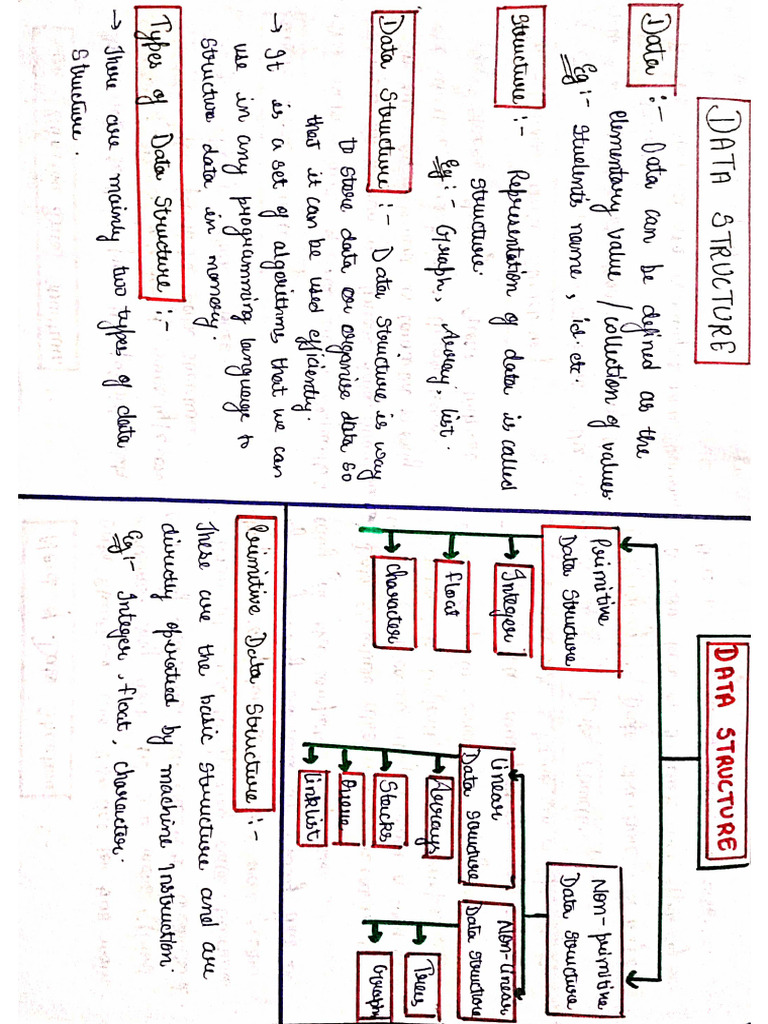 DATA STRUCTURE
Data :- Data can be defined as the
elementary value / collection of values
Eg:- Students name, id etc.
Structure :- Representation of data is called
structure.
Eg:- Graph, Array, list.
Data Structure :- Data Structure is way
to store data or organise data so
that it can be used efficiently.
→ It is a set of algorithms that we can
use in any programming language to
structure data in memory.
Types of Data Structure :-
→ There are mainly two types of data
structure.
DATA STRUCTURE
Primitive
Data Structure
Integer
float
character
Non-primitive
Data Structure
linear
Data Structure
Arrays
Stacks
Queue
linklist
Non-linear
Data Structure
Trees
Graph
Primitive Data Structure :-
These are the basic structure and are
directly operated by machine Instruction.
Eg:- Integer, float, character.